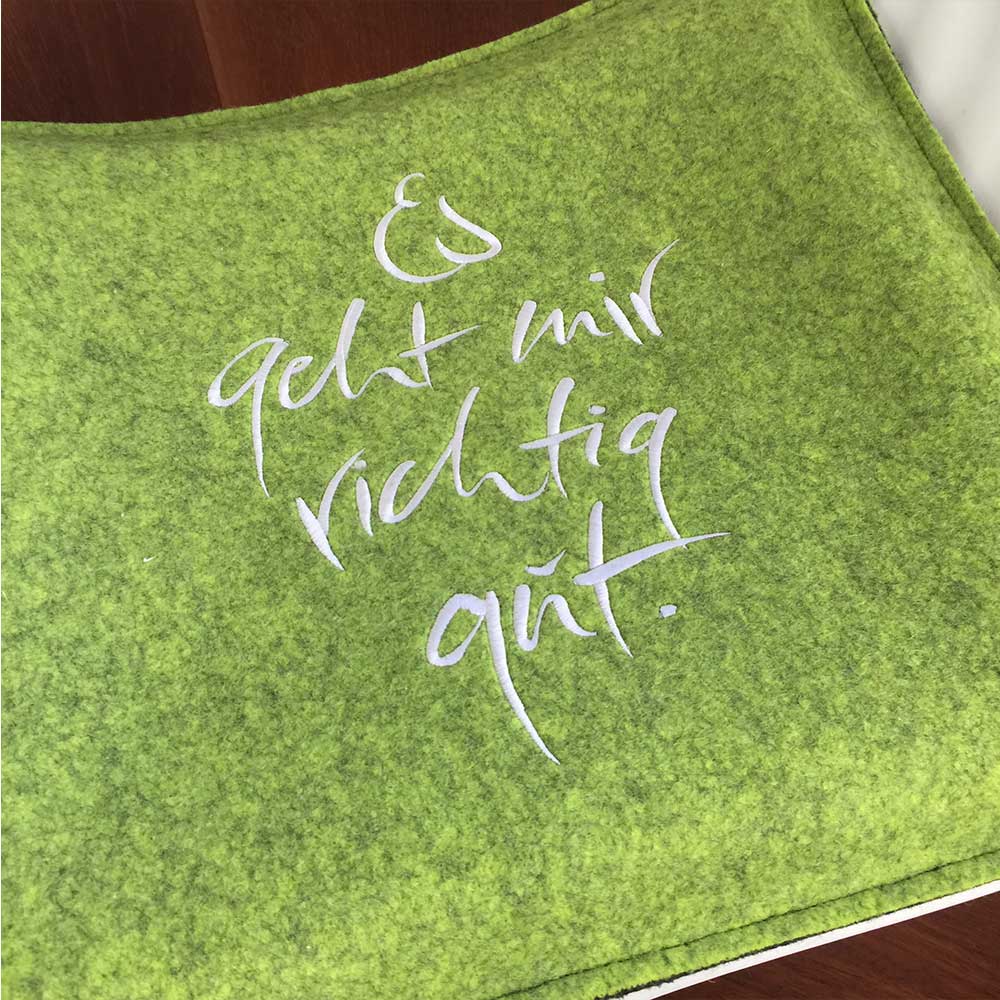 Es
geht mir
richtig
gŭt.